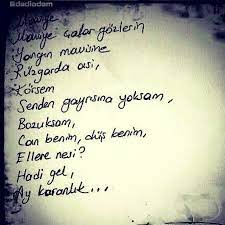 @dadiodam
Maviye
Maviye çalar gözlerin
Yangın mavisine
Rüzgarda asi,
Körsem
Senden gayrısına yoksam,
Bozuksam,
Can benim, düş benim,
Ellere nesi?
Hadi gel,
Ay karanlık...